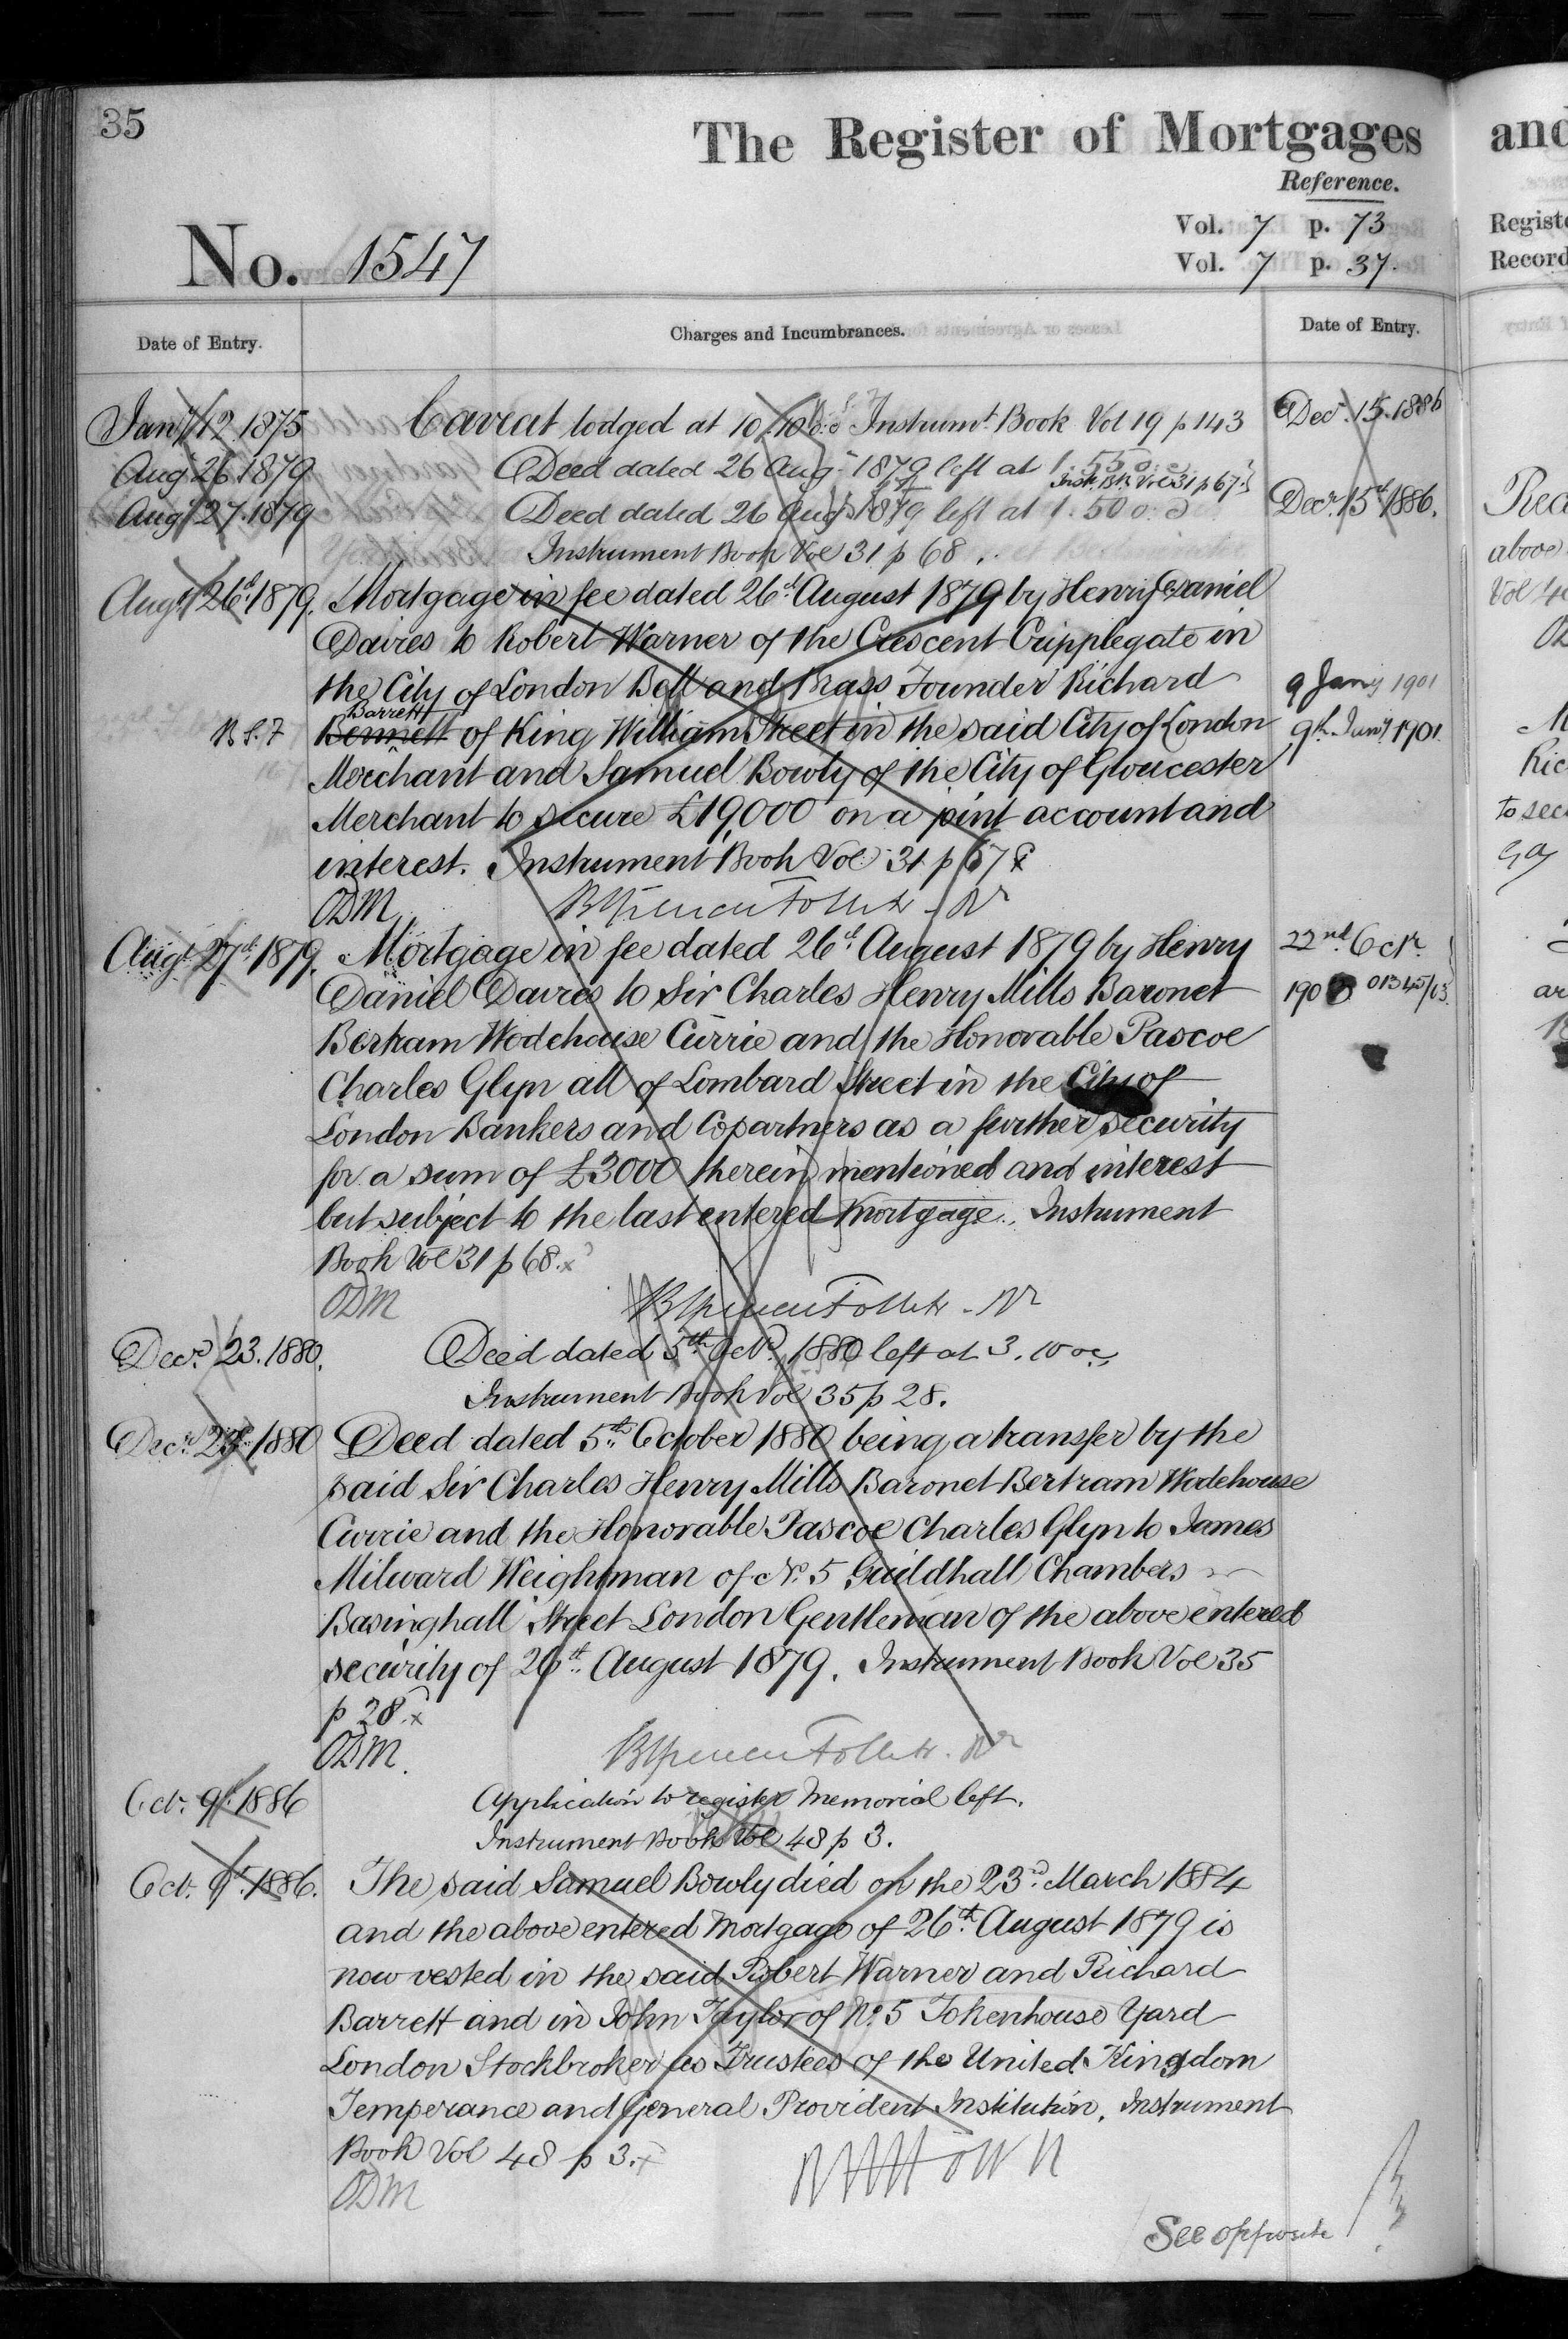 35
The Register of Mortgages
Reference.
No. 1547
Vol. 7 p. 73
Vol. 7 p. 37.
Date of Entry.
Charges and Incumbrances.
Date of Entry.
Jany 12. 1875 Caveat lodged at 10.10 Instrumt. Book Vol 19 p 143
Decr. 15. 1886
Aug 26 1879 Deed dated 26 Augt. 1879 left at 1.55
Instr. Bk Vol 31 p 67
Augt 27. 1879 Deed dated 26 Augt 1879 left at 1.50
Decr. 15th 1886.
Instrument Book Vol 31 p 68.
Augt 26th 1879. Mortgage in fee dated 26th August 1879 by Henry Daniel
Davies to Robert Warner of the Crescent Cripplegate in
the City of London Bell and Brass Founder Richard
9 Jany 1901
Barrett
B S. F Bennett of King William Street in the said City of London
9th Jany 1901.
Merchant and Samuel Bowly of the City of Gloucester
Merchant to secure £19,000 on a joint account and
interest. Instrument Book Vol 31 p 67
ODM
Augt 27th 1879. Mortgage in fee dated 26th August 1879 by Henry
22nd Octr.
Daniel Davies to Sir Charles Henry Mills Baronet
Bertram Wodehouse Currie and the Honorable Pascoe
Charles Glyn all of Lombard Street in the City of
London Bankers and Copartners as a further security
for a sum of £3000 therein mentioned and interest
but subject to the last entered mortgage. Instrument
Book Vol 31 p 68. x
ODM
Decr. 23. 1880. Deed dated 5th Octr. 1880 left at 3.10
Instrument Book Vol 35 p 28.
Decr. 23d 1880 Deed dated 5th October 1880 being a transfer by the
said Sir Charles Henry Mills Baronet Bertram Wodehouse
Currie and the Honorable Pascoe Charles Glyn to James
Milward Weightman of No. 5 Guildhall Chambers
Basinghall Street London Gentleman of the above entered
security of 26th August 1879. Instrument Book Vol 35
p 28. x
ODM.
Oct. 9th 1886 Application to register Memorial left.
Instrument Book Vol 48 p 3.
Oct. 9th 1886. The said Samuel Bowly died on the 23rd March 1884
and the above entered Mortgage of 26th August 1879 is
now vested in the said Robert Warner and Richard
Barrett and in John Taylor of No. 5 Tokenhouse Yard
London Stockbroker as Trustees of the United Kingdom
Temperance and General Provident Institution. Instrument
Book Vol 48 p 3. x
ODM
See opposite